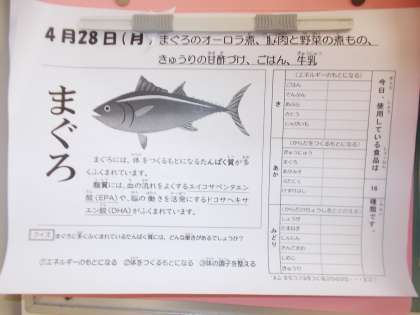 4月28日(月) まぐろのオーロラ煮、豚肉と野菜の煮もの、
きゅうりの甘酢づけ、ごはん、牛乳
まぐろ
まぐろには、体をつくるもとになるたんぱく質が多
くふくまれています。
脂質には、血の流れをよくするエイコサペンタエン
酸(EPA)や、脳の働きを活発にするドコサヘキサ
エン酸(DHA)がふくまれています。
クイズ まぐろに多くふくまれているたんぱく質には、どんな働きがあるでしょうか?
①エネルギーのもとになる ②体をつくるもとになる ③体の調子を整える
今日、使用している食品は
16
種類です。
き
(エネルギーのもとになる)
ごはん
でんぷん
あぶら
さとう
じゃがいも
あか
(からだをつくるもとになる)
ぎゅうにゅう
まぐろ
ぶたにく
みどり
しょうが
たまねぎ
にんじん
しめじ
きゅうり